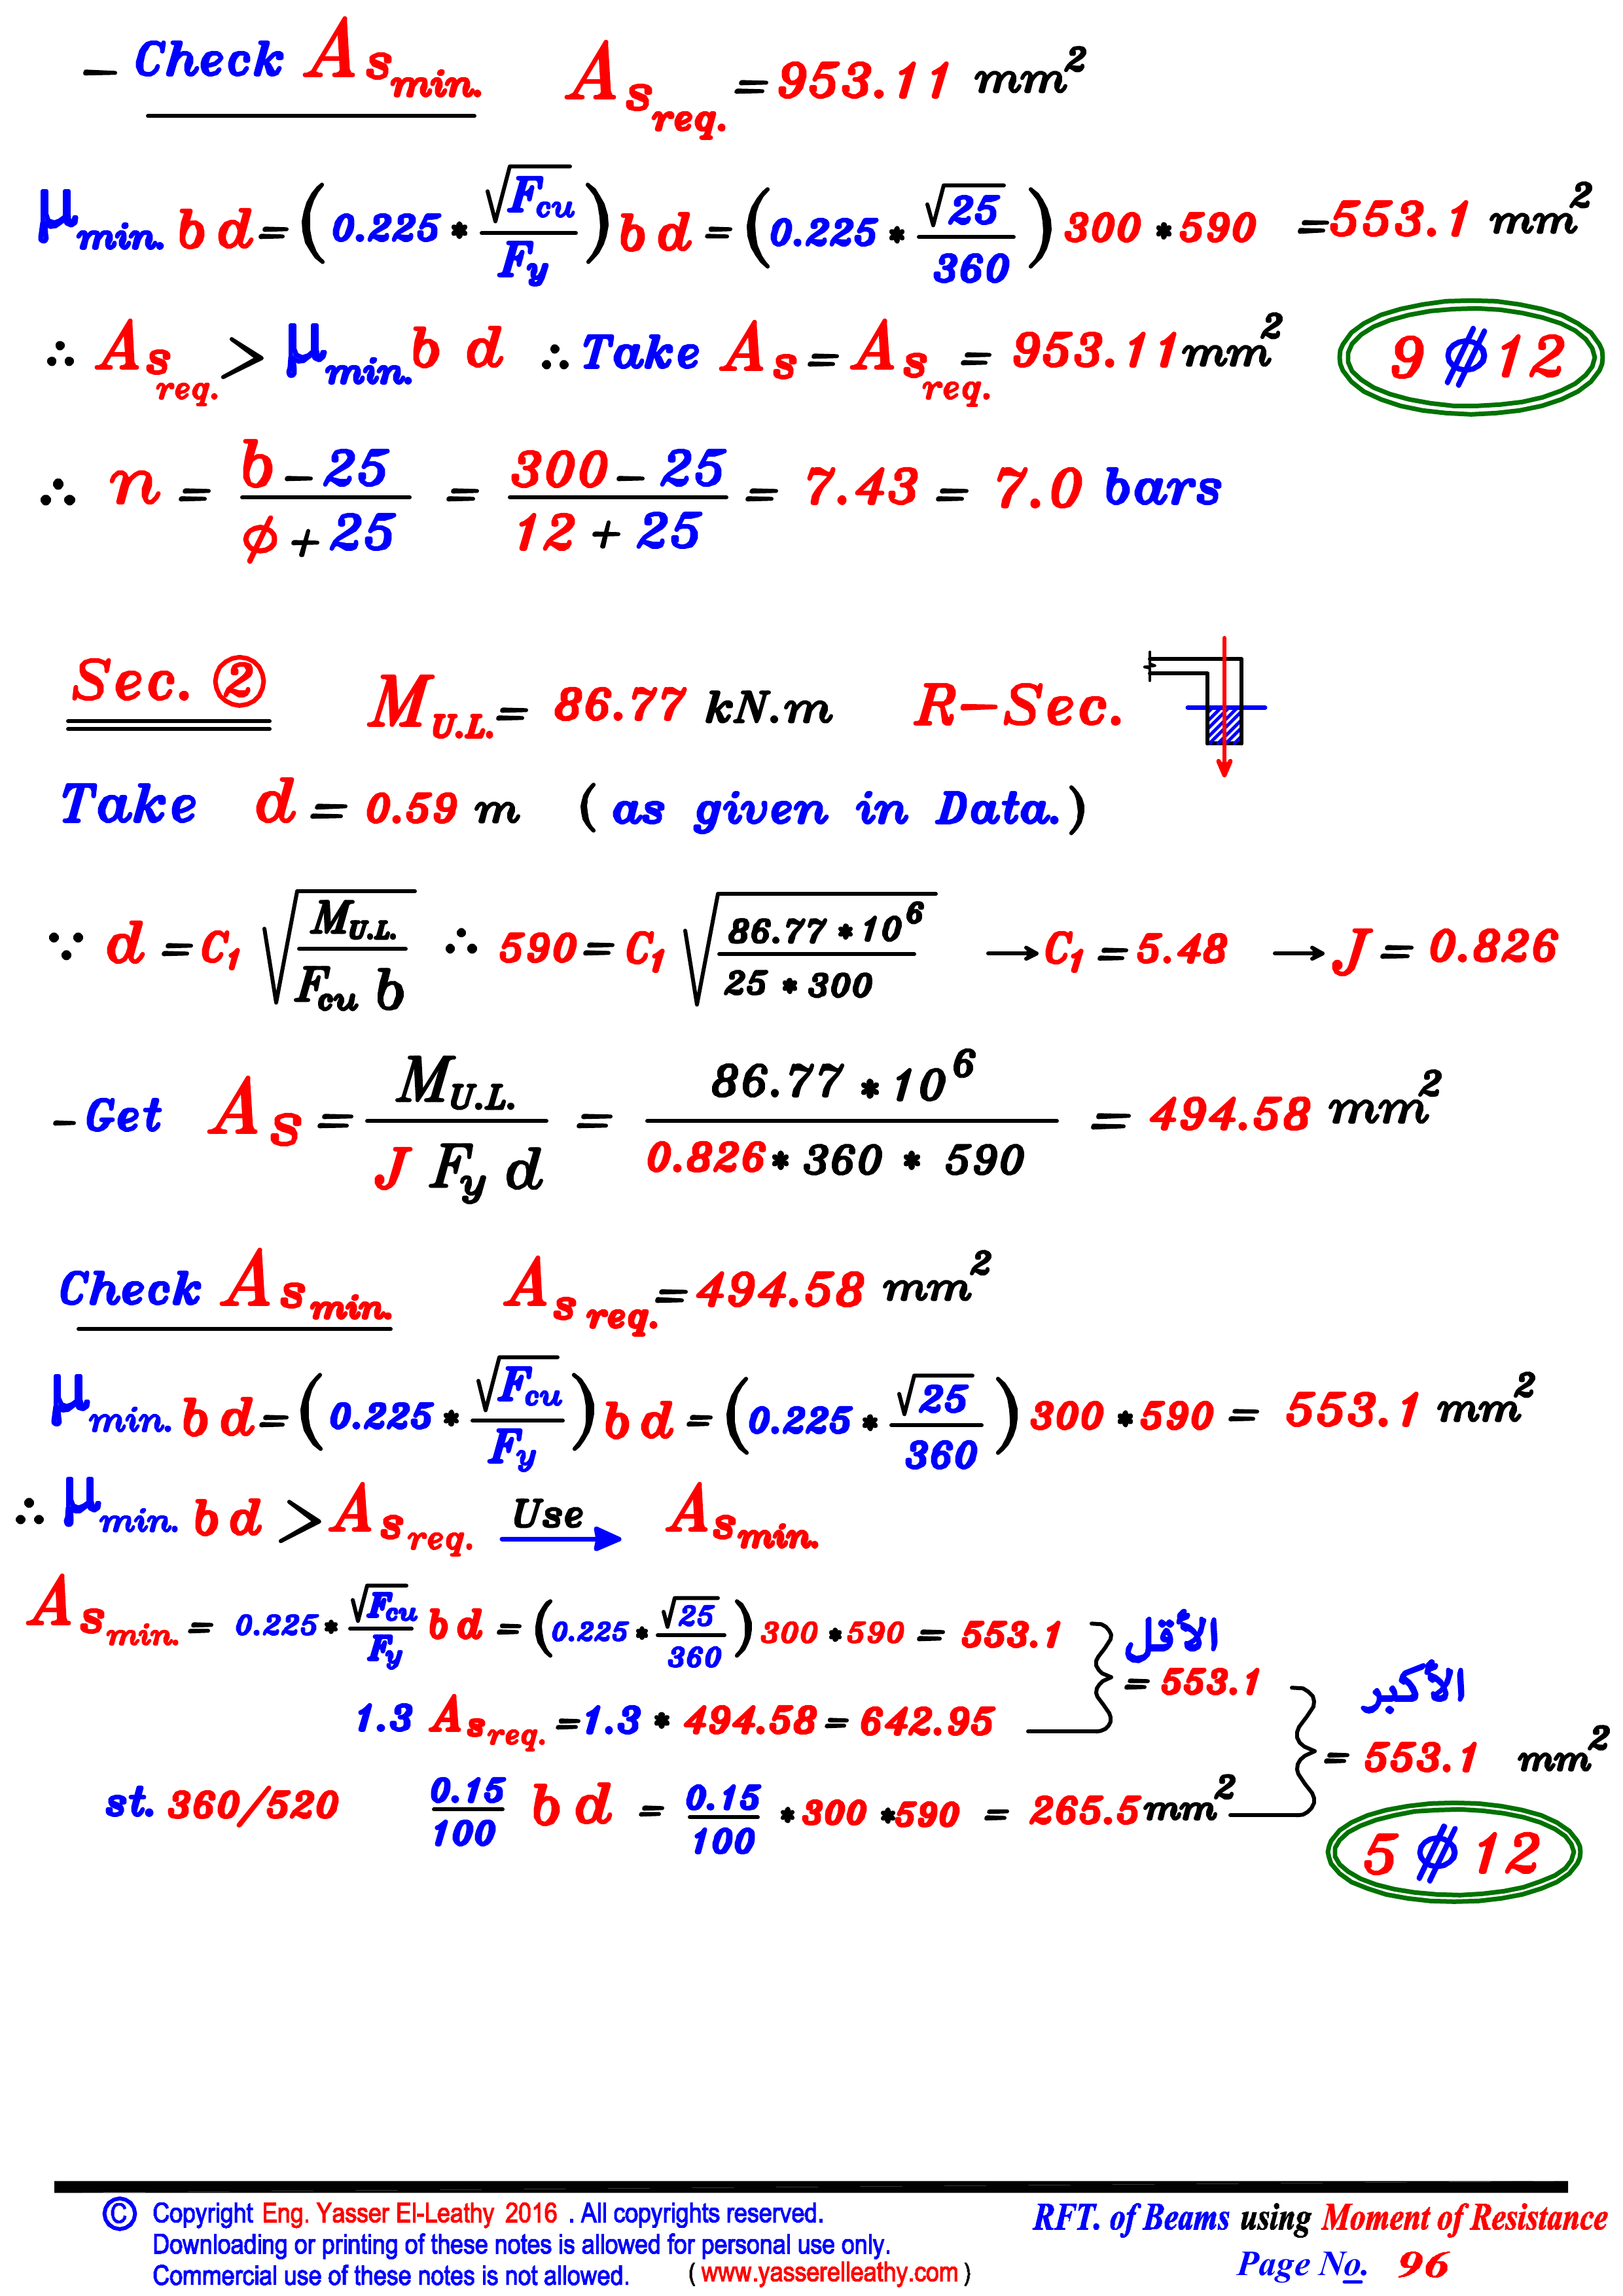 - Check As min. As req. = 953.11 mm²
μ min. b d = (0.225 * √Fcu / Fy) b d = (0.225 * √25 / 360) 300 * 590 = 553.1 mm²
∴ As req. > μ min. b d ∴ Take As = As req. = 953.11 mm² 9 ⌀ 12
∴ n = b - 25 / φ + 25 = 300 - 25 / 12 + 25 = 7.43 = 7.0 bars
Sec. ② M U.L. = 86.77 kN.m R-Sec.
Take d = 0.59 m ( as given in Data. )
∵ d = C1 √(M U.L. / Fcu b) ∴ 590 = C1 √(86.77 * 10⁶ / 25 * 300) → C1 = 5.48 → J = 0.826
- Get As = M U.L. / J Fy d = 86.77 * 10⁶ / 0.826 * 360 * 590 = 494.58 mm²
Check As min. As req. = 494.58 mm²
μ min. b d = (0.225 * √Fcu / Fy) b d = (0.225 * √25 / 360) 300 * 590 = 553.1 mm²
∴ μ min. b d > As req. Use → As min.
As min. = 0.225 * √Fcu / Fy b d = (0.225 * √25 / 360) 300 * 590 = 553.1
الأقل
= 553.1
1.3 As req. = 1.3 * 494.58 = 642.95
الأكبر
= 553.1 mm²
st. 360/520 0.15 / 100 b d = 0.15 / 100 * 300 * 590 = 265.5 mm²
5 ⌀ 12
© Copyright Eng. Yasser El-Leathy 2016 . All copyrights reserved.
Downloading or printing of these notes is allowed for personal use only.
Commercial use of these notes is not allowed. ( www.yasserelleathy.com )
RFT. of Beams using Moment of Resistance
Page No. 96